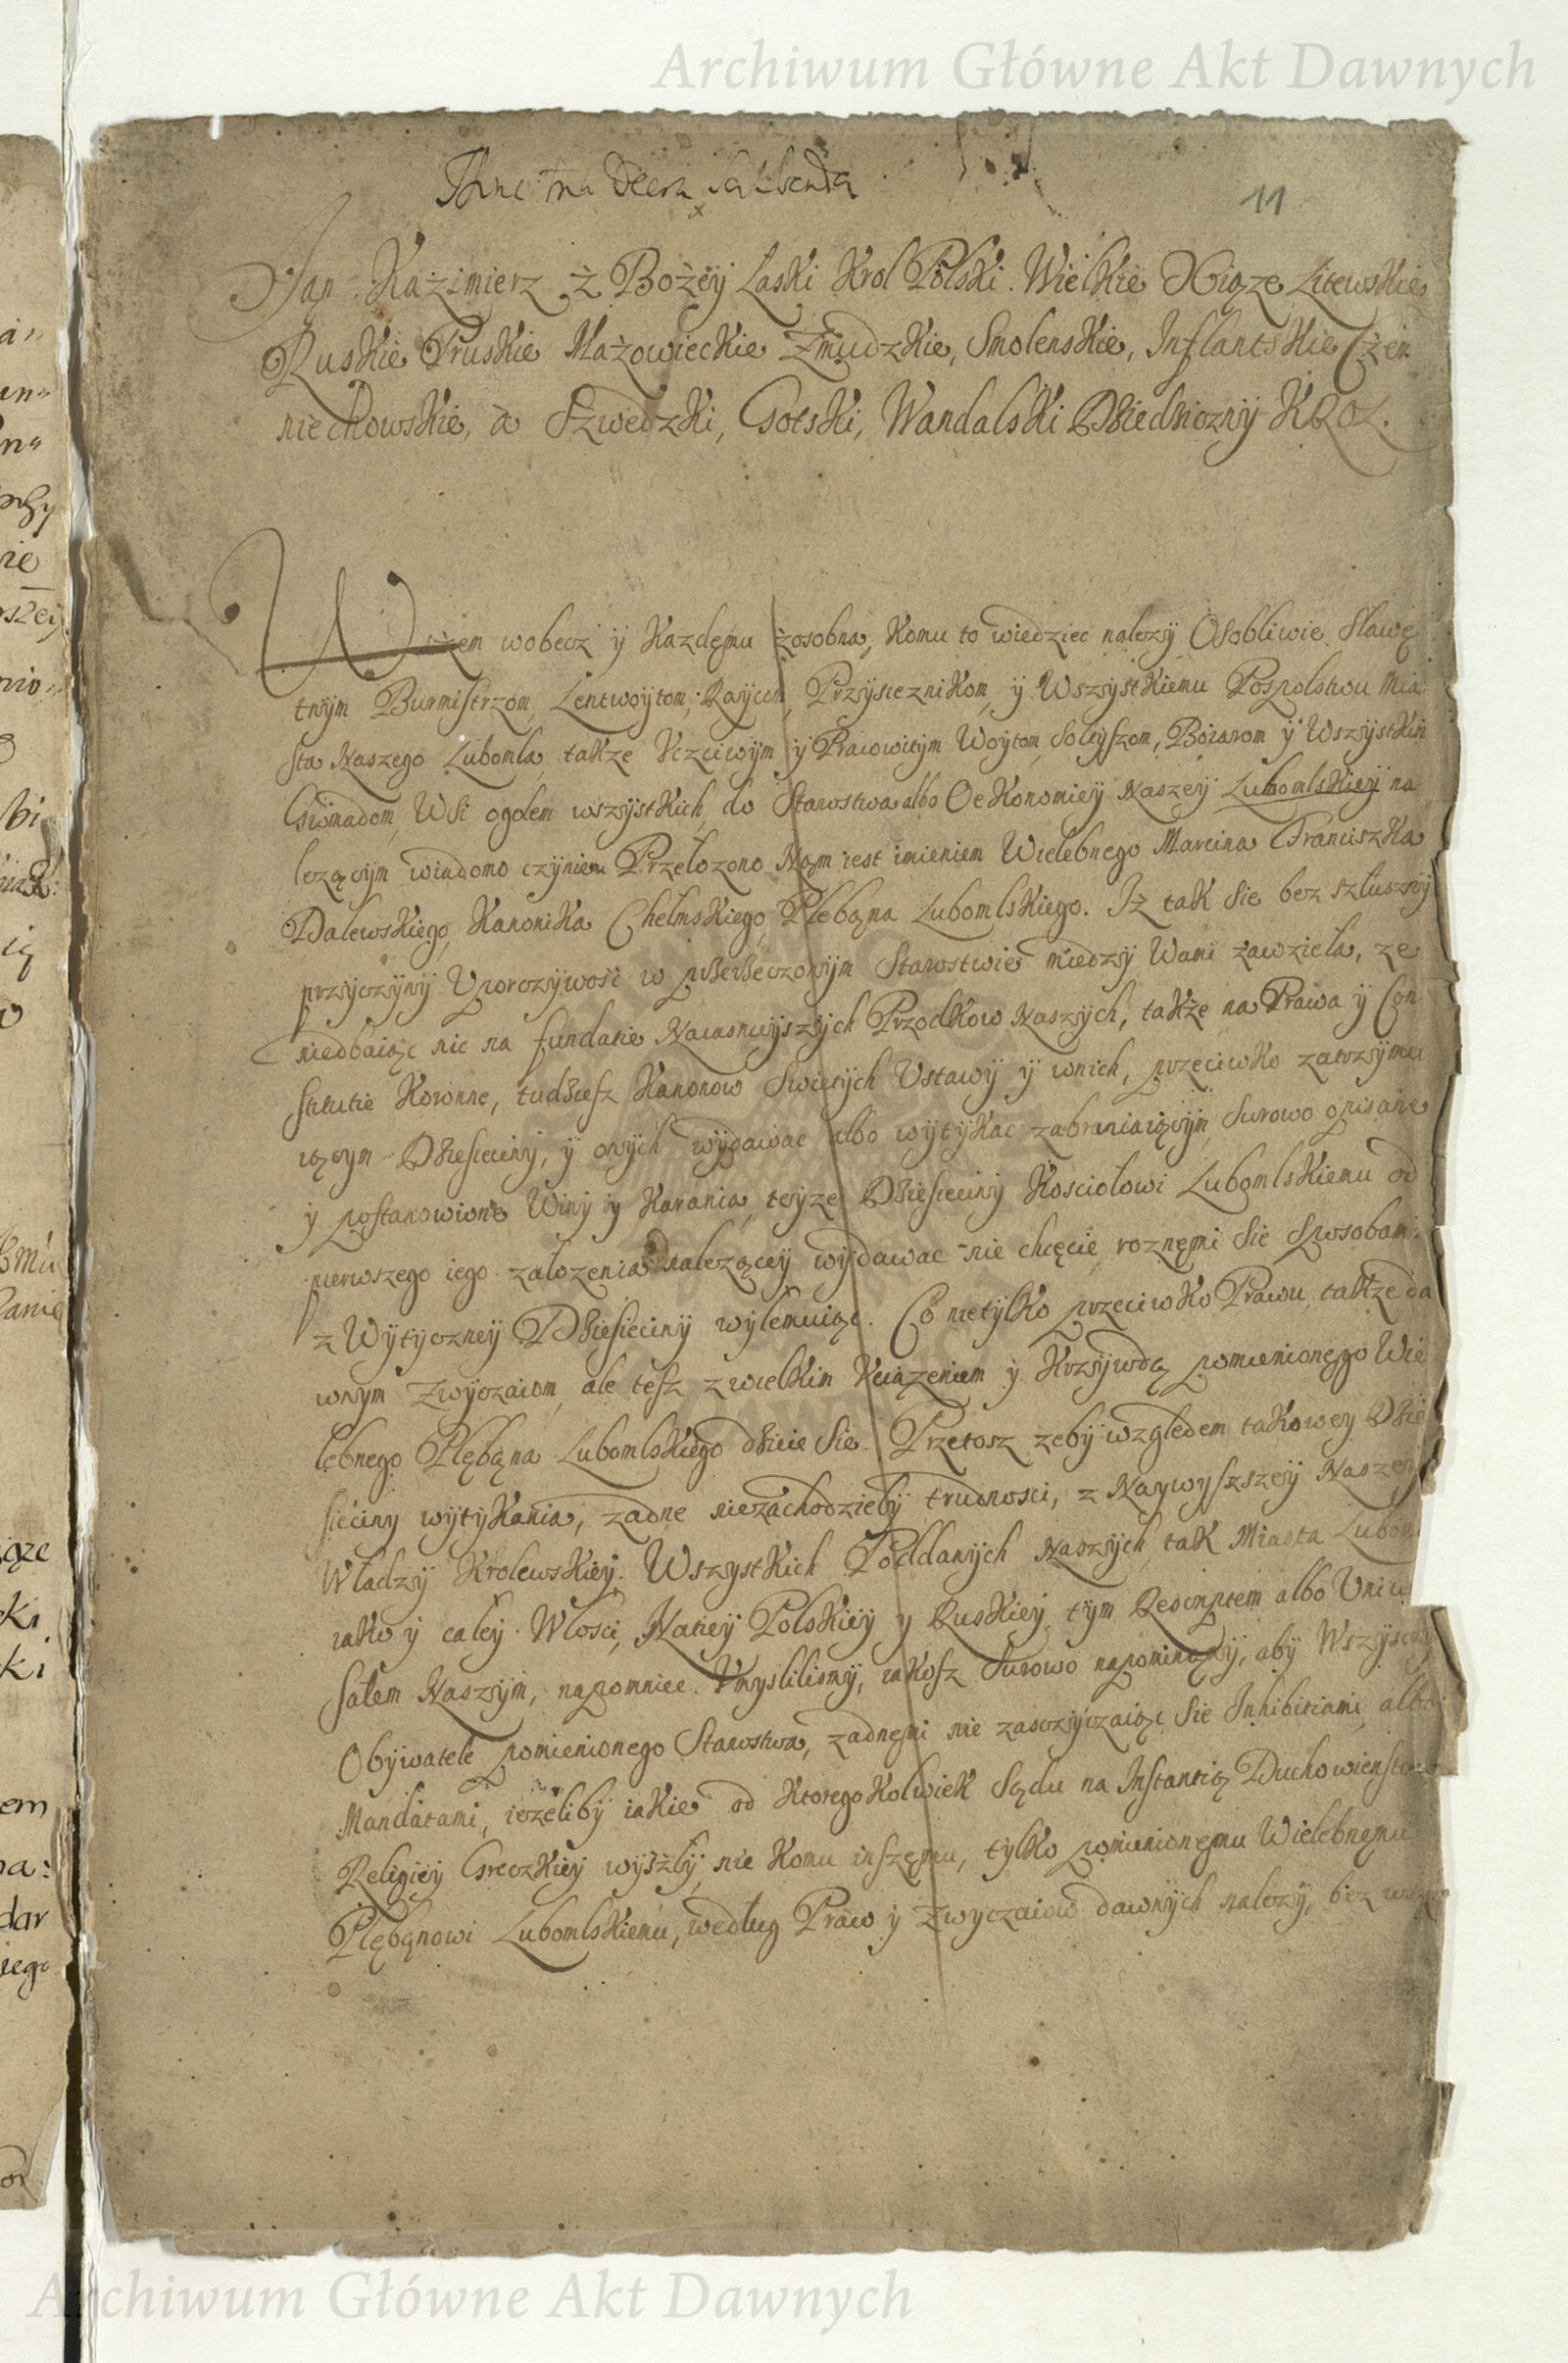 Archiwum Główne Akt Dawnych
11
Jan Kazimierz z Bożey Łaski Krol Polski. Wielkie Xiąze Litewskie
Ruskie Pruskie Mazowieckie Zmudzkie, Smolenskie, Inflantskie Czer
niechowskie, a Szwedzki, Gotski, Wandalski Dziedziczny KROL.
wobecz y Kazdęmu zosobna, Komu to wiedziec nalezy Osobliwie Sławę
tnym Burmistrzom, Lentwoytom, Raycom, Przysieznikom, y Wszystkiemu Pospolstwu Mia
sta Naszego Lubomla, takze Vczciwym y Pracowitym Woytom, Soltyszom, Boiarom y Wszystkim
Gromadom, Wsi ogolem wszystkich, do Starostwa albo Oekonomiey Naszey Lubomlskiey na
lezącym wiadomo czyniem Przelozono Nam iest imieniem Wielebnego Marcina Franciszka
Dalewskiego, Kanonika Chelmskiego, Plebąna Lubomlskiego. Iz tak sie bez szluszny
przyczyny Uporczywosc w Starostwie miedzy Wami zawzieła, ze
niedbaiąc nic na fundatie Naiasnieyszych Przodkow Naszych, takze na Prawa y Con
stitutie Koronne, tudziesz Kanonow Swietych Ustawy y wnich, przeciwko zatrzymu
iącym Dziesieciny, y onych wydawac albo wytykac zabraniaiącym, Surowo opisane
y postanowione Winy y Karania, teyze Dziesieciny Kosciołowi Lubomlskiemu od
pierwszego iego zalozenia nalezącey wydawac nie chcęcie, roznęmi Sie Sposobami
z Wytyczney Dziesieciny wylemuiąc. Co nietylko przeciwko Prawu, takze da
wnym Zwyczaiom, ale tesz z wielkim Vciązeniem y Krzywdą pomienionego Wie
lebnego Plębąna Lubomlskiego dzieie Sie. Przetosz zeby wzgledem takowey Dzie
sieciny wytykania, zadne niezachodzieły trudnosci, z Naywyszszey Naszey
Władzy Krolewskiey. Wszystkich Poddanych Naszych, tak Miasta Lubom
iako y caley Wlosci, Natiey Polskiey y Ruskiey, tym Rescriptem albo Uniw
sałem Naszym, napomniec Vmyslilismy, iakosz Surowo napominamy, aby Wszyscy
Obywatele pomienionego Starostwa, zadnęmi nie zasczyczaiąc Sie Inhibitiami, albo
Mandatami, iezeliby iakie od Ktoregokolwiek Sądu na Instantią Duchowienstwa
Religiey Greczkiey wyszły, nie Komu inszęmu, tylko pomienionęmu Wielebnęmu
Plębąnowi Lubomlskiemu, według Praw y Zwyczaiow dawnych nalezy, bez
Archiwum Główne Akt Dawnych